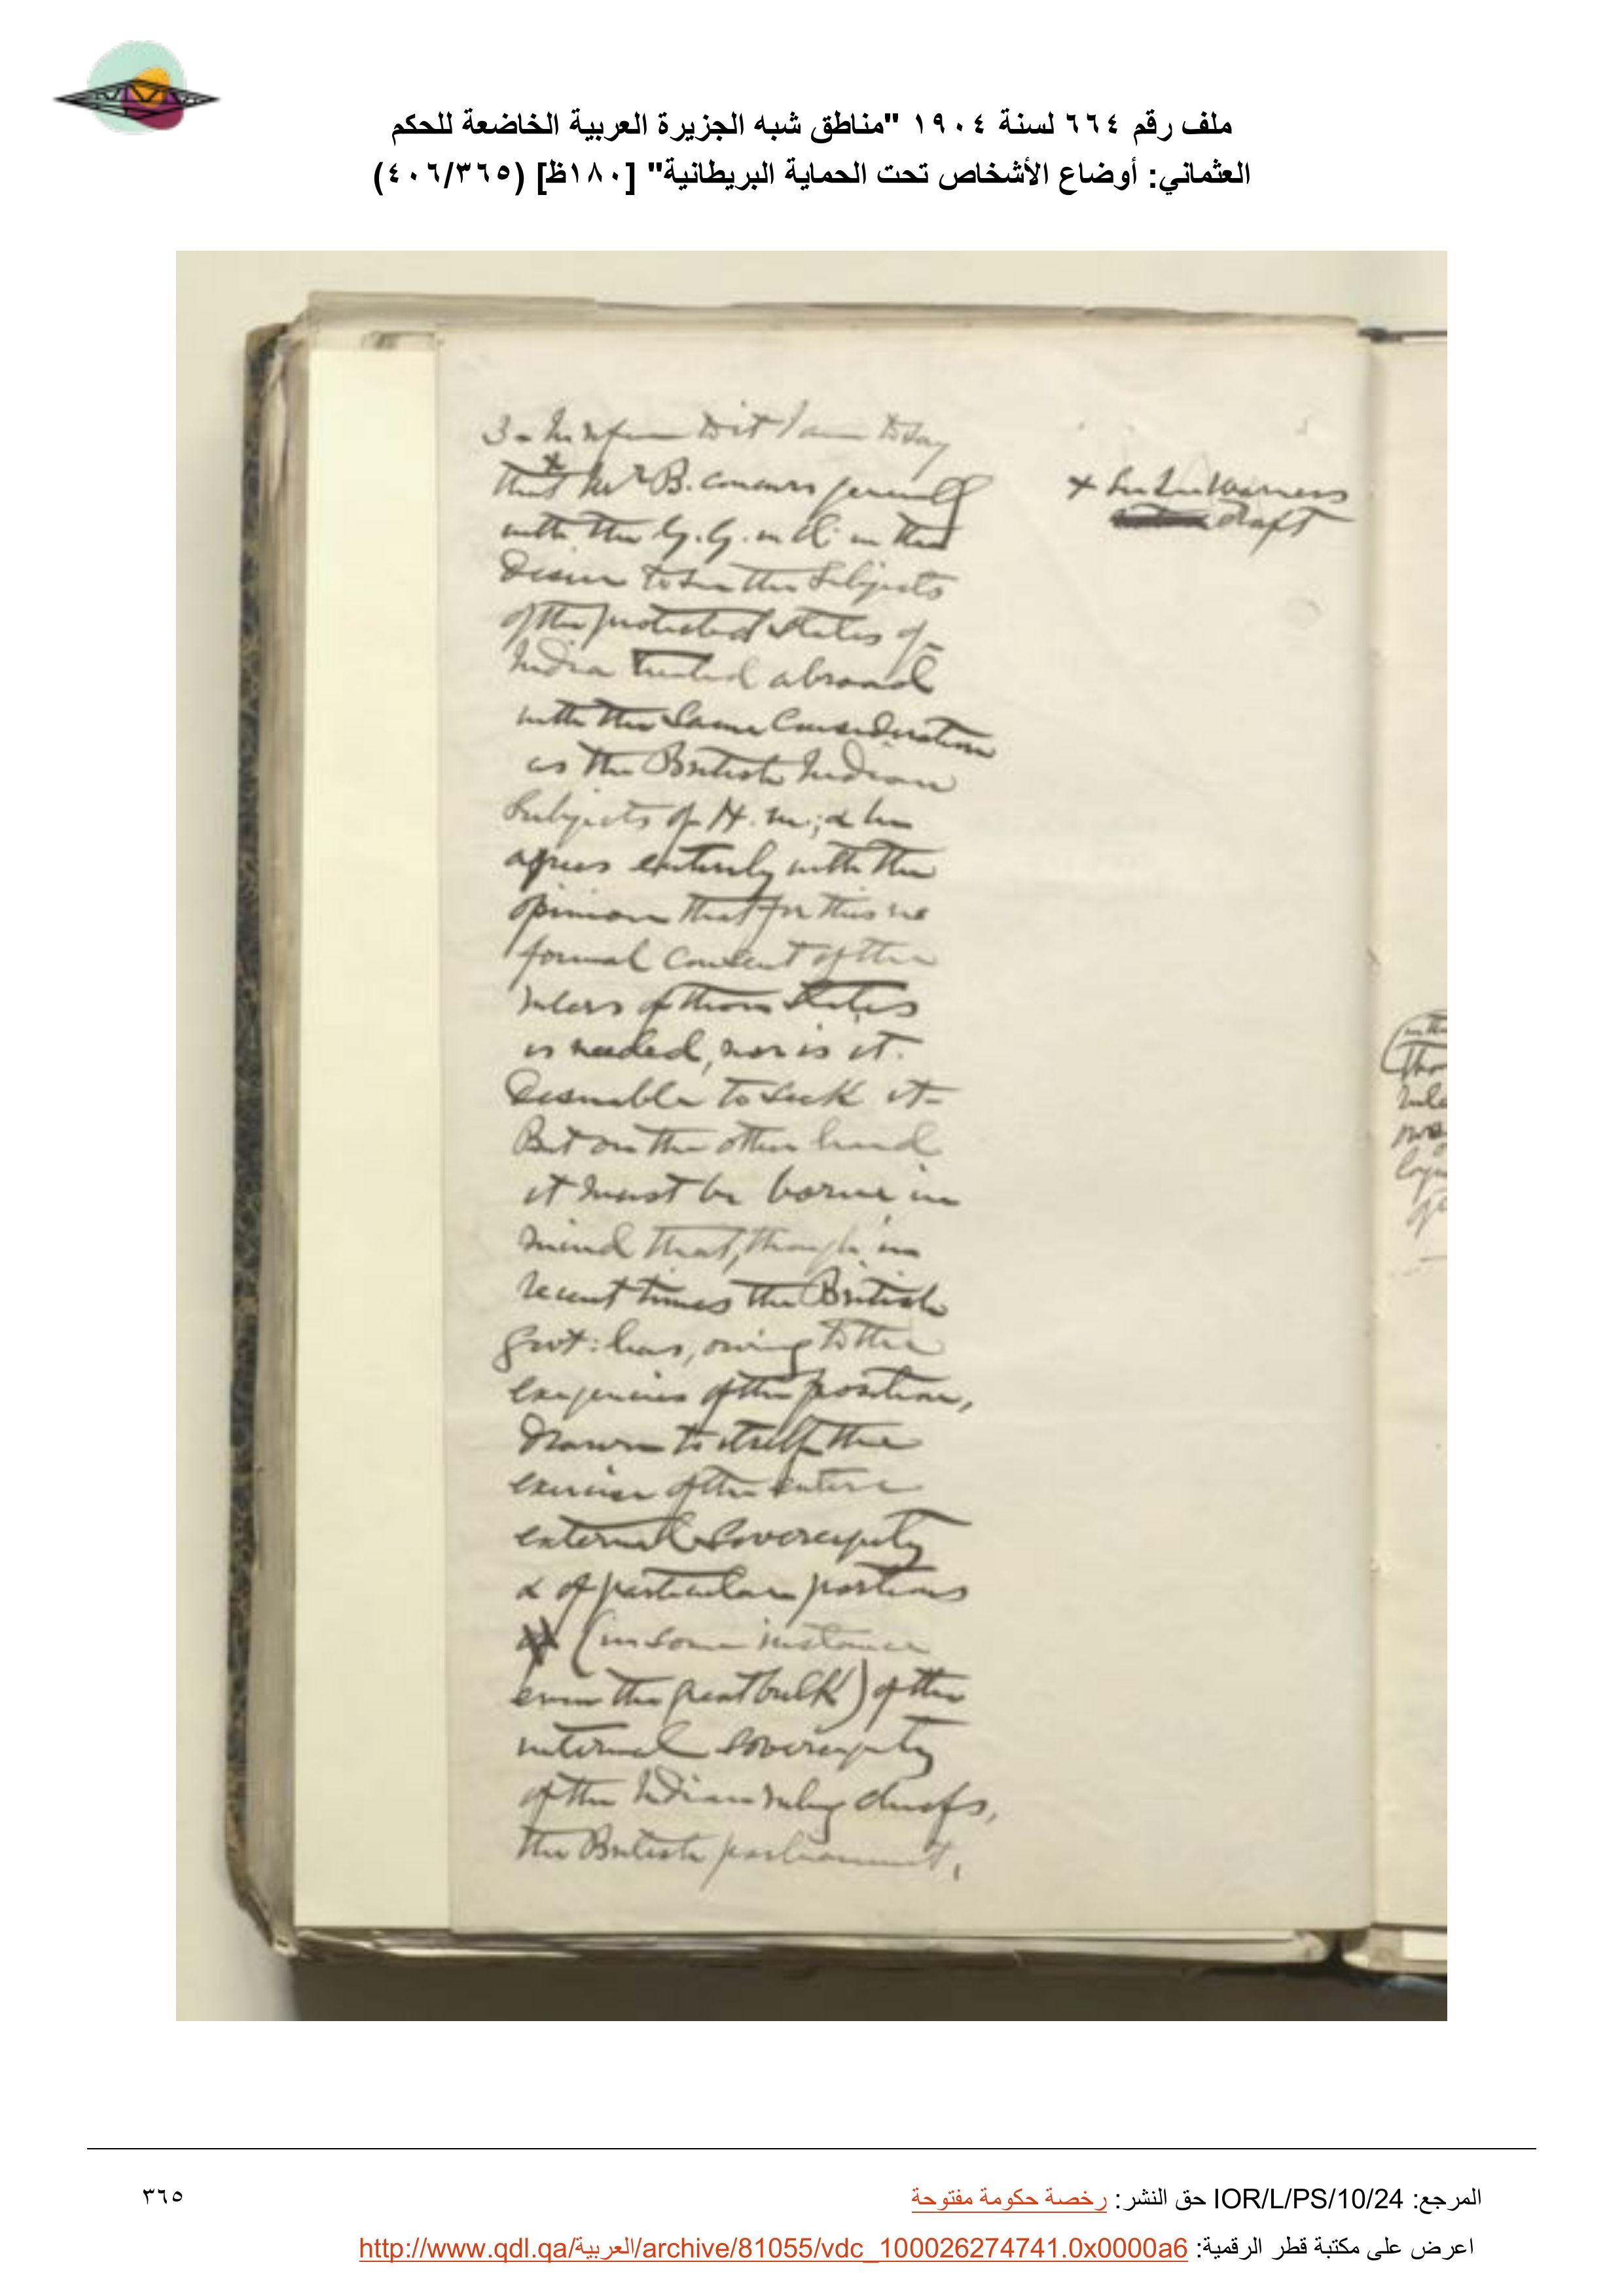 ملف رقم ٦٦٤ لسنة ١٩٠٤ "مناطق شبه الجزيرة العربية الخاضعة للحكم
العثماني: أوضاع الأشخاص تحت الحماية البريطانية" [١٨٠ظ] (٤٠٦/٣٦٥)
3 - In reply to it I am to say
that Mr B. concurs generally
with the G. G. in C. in the
desire to see the subjects
of the protected States of
India treated abroad
with the same consideration
as the British Indian
subjects of H. M.; & he
agrees entirely with the
opinion that for this no
formal consent of the
rulers of those States
is needed, nor is it
desirable to seek it -
But on the other hand
it must be borne in
mind that, though in
recent times the British
Govt: has, owing to the
exigencies of the position,
drawn to itself the
exercise of the entire
external sovereignty
& of particular portions
(in some instances
even the great bulk) of the
internal sovereignty
of the Indian ruling chiefs,
the British parliament,
+ See
draft
المرجع: IOR/L/PS/10/24 حق النشر: رخصة حكومة مفتوحة
٣٦٥
اعرض على مكتبة قطر الرقمية: http://www.qdl.qa/العربية/archive/81055/vdc_100026274741.0x0000a6